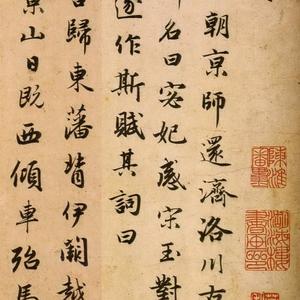 朝亰師還濟洛川古
名曰宓妃感宋玉對
遂作斯賦其詞曰
歸東藩背伊闕越
山日既西傾車殆馬